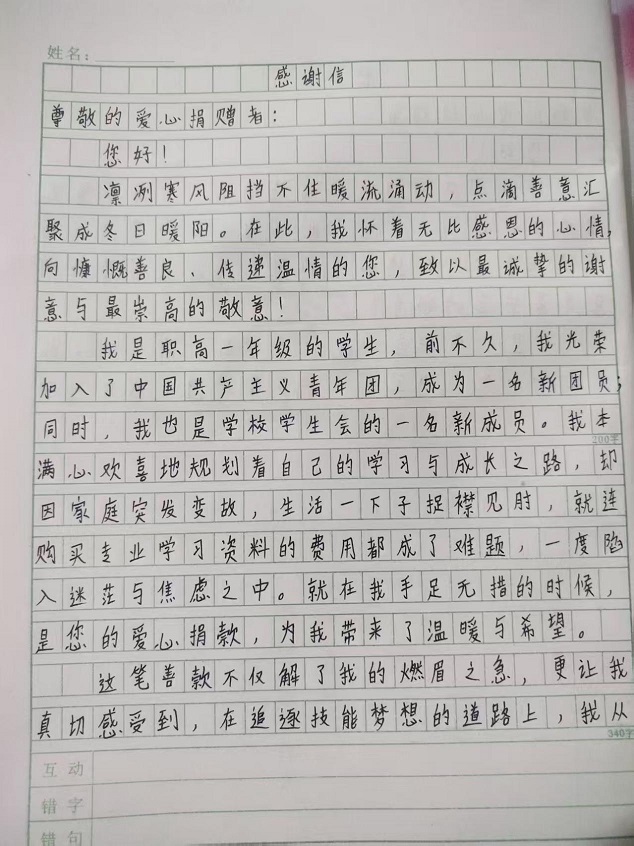 姓名：
感谢信
尊敬的爱心捐赠者：
您好！
凛冽寒风阻挡不住暖流涌动，点滴善意汇
聚成冬日暖阳。在此，我怀着无比感恩的心情，
向慷慨善良、传递温情的您，致以最诚挚的谢
意与最崇高的敬意！
我是职高一年级的学生，前不久，我光荣
加入了中国共产主义青年团，成为一名新团员；
同时，我也是学校学生会的一名新成员。我本
200字
满心欢喜地规划着自己的学习与成长之路，却
因家庭突发变故，生活一下子捉襟见肘，就连
购买专业学习资料的费用都成了难题，一度陷
入迷茫与焦虑之中。就在我手足无措的时候，
是您的爱心捐款，为我带来了温暖与希望。
这笔善款不仅解了我的燃眉之急，更让我
真切感受到，在追逐技能梦想的道路上，我从
340字
互动
错字
错句